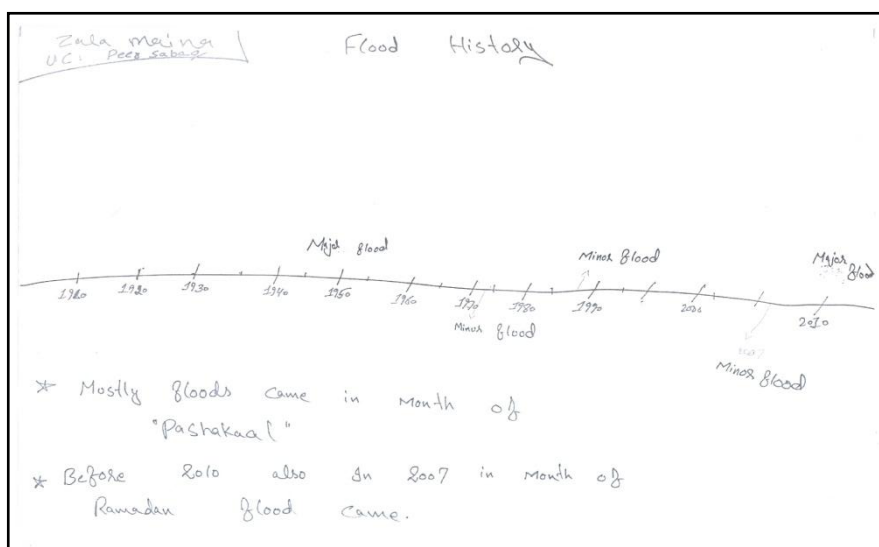 Zala Maina
UC: Peer Sabaq
Flood History
Major flood
Minor flood
Major flood
1910 1920 1930 1940 1950 1960 1970 1980 1990 2000 2010
Minor flood
2007
Minor flood
* Mostly floods came in Month of
"Pashakaal"
* Before 2010 also In 2007 in Month of
Ramadan flood came.